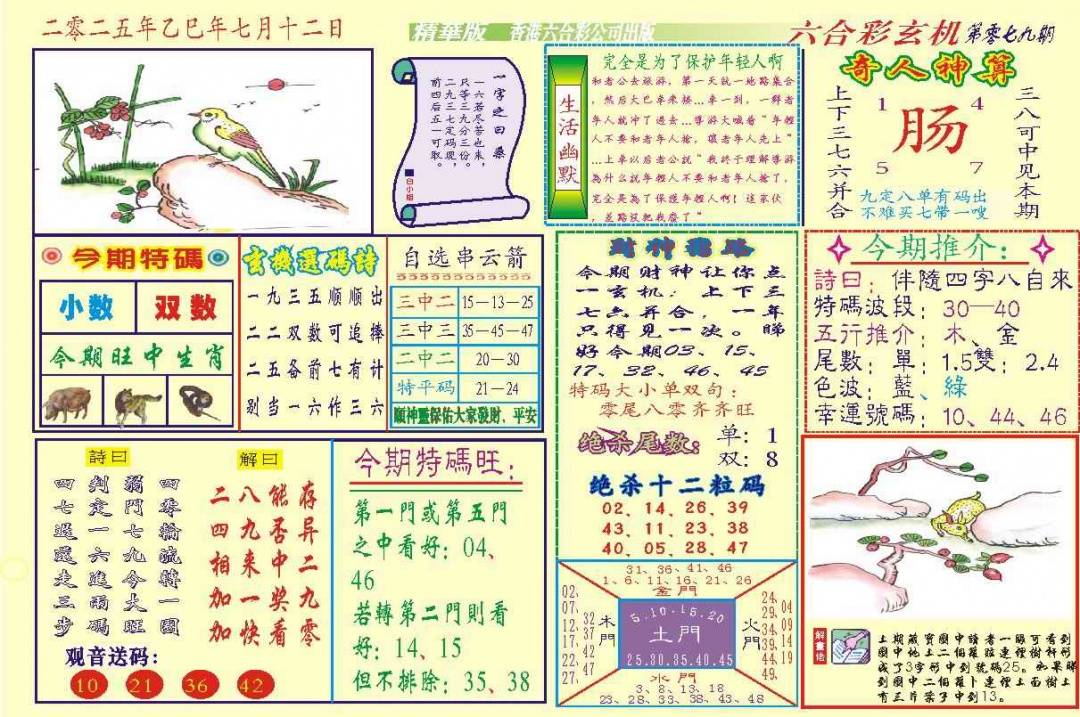 二零二五年乙巳年七月十二日
精華版 香港六合彩公司出版
六合彩玄机 第零七九期
一字之曰桑
一六若尽苦也来，
只等六若分三份，
二九三定一码现，
前四后五七可取。
白小姐
生活幽默
完全是为了保护年轻人啊
和老公去旅游，第一天就一地路集合
，然后大巴车来接…车一到，一群老
年人就冲了过去…导游大喊着“年轻
人不要和老年人抢，让老年人先上”
…上车以后老公说“我终于理解导游
為什么說年輕人不要和老年人搶了，
完全是為了保護年輕人啊！這家伙，
差點沒把我擠了”
奇人神算
上下三七六并合
1 4
肠
5 7
三八可中见本期
九定八单有码出
不难买七带一嗖
今期特碼
小数 双数
今期旺中生肖
玄機選碼詩
一九三五顺顺出
二二双数可追捧
二五备前七有计
别当一六作三六
自选串云箭
三中二 15—13—25
三中三 35—45—47
二中二 20—30
特平码 21—24
順神靈保佑大家發財、平安
财神指路
今期财神让你点
一玄机：上下三
七六并合，一年
只得见一次。睇
好今期03、15、
17、32、46、45
特码大小单双句：
零尾八零齐齐旺
绝杀尾数： 单：1
双：8
绝杀十二粒码
02、14、26、39
43、11、23、38
40、05、28、47
今期推介：
詩曰：伴隨四字八自來
特碼波段：30—40
五行推介：木、金
尾數：單：1.5雙：2.4
色波：藍、綠
幸運號碼：10、44、46
詩曰
四零輪流轉一圈
弱門七九今大旺
判定一六進兩碼
四七送還走三步
解曰
二八能存
四九否异
相来中二
加一奖九
加快看零
观音送码：
10 21 36 42
今期特碼旺：
第一門或第五門
之中看好：04、
46
若轉第二門則看
好：14、15
但不排除：35、38
31、36、41、46
1、6、11、16、21、26
金門
02、07、12、17、22、27、
32、37、42、47
木門
5.10.15.20
土門
25.30.35.40.45
火門
24、29、34、39、44、49
04、09、14、19
水門
3、8、13、18
23、28、33、38、43、48
解畫語
上期藏寶圖中讀者一眼可看到
圖中地上二個蘿蔔連裡樹杆形
成了3字形中到號碼25。如果睇
到圖中二個蘿卜連裡上面樹上
有三片葉子中到13。